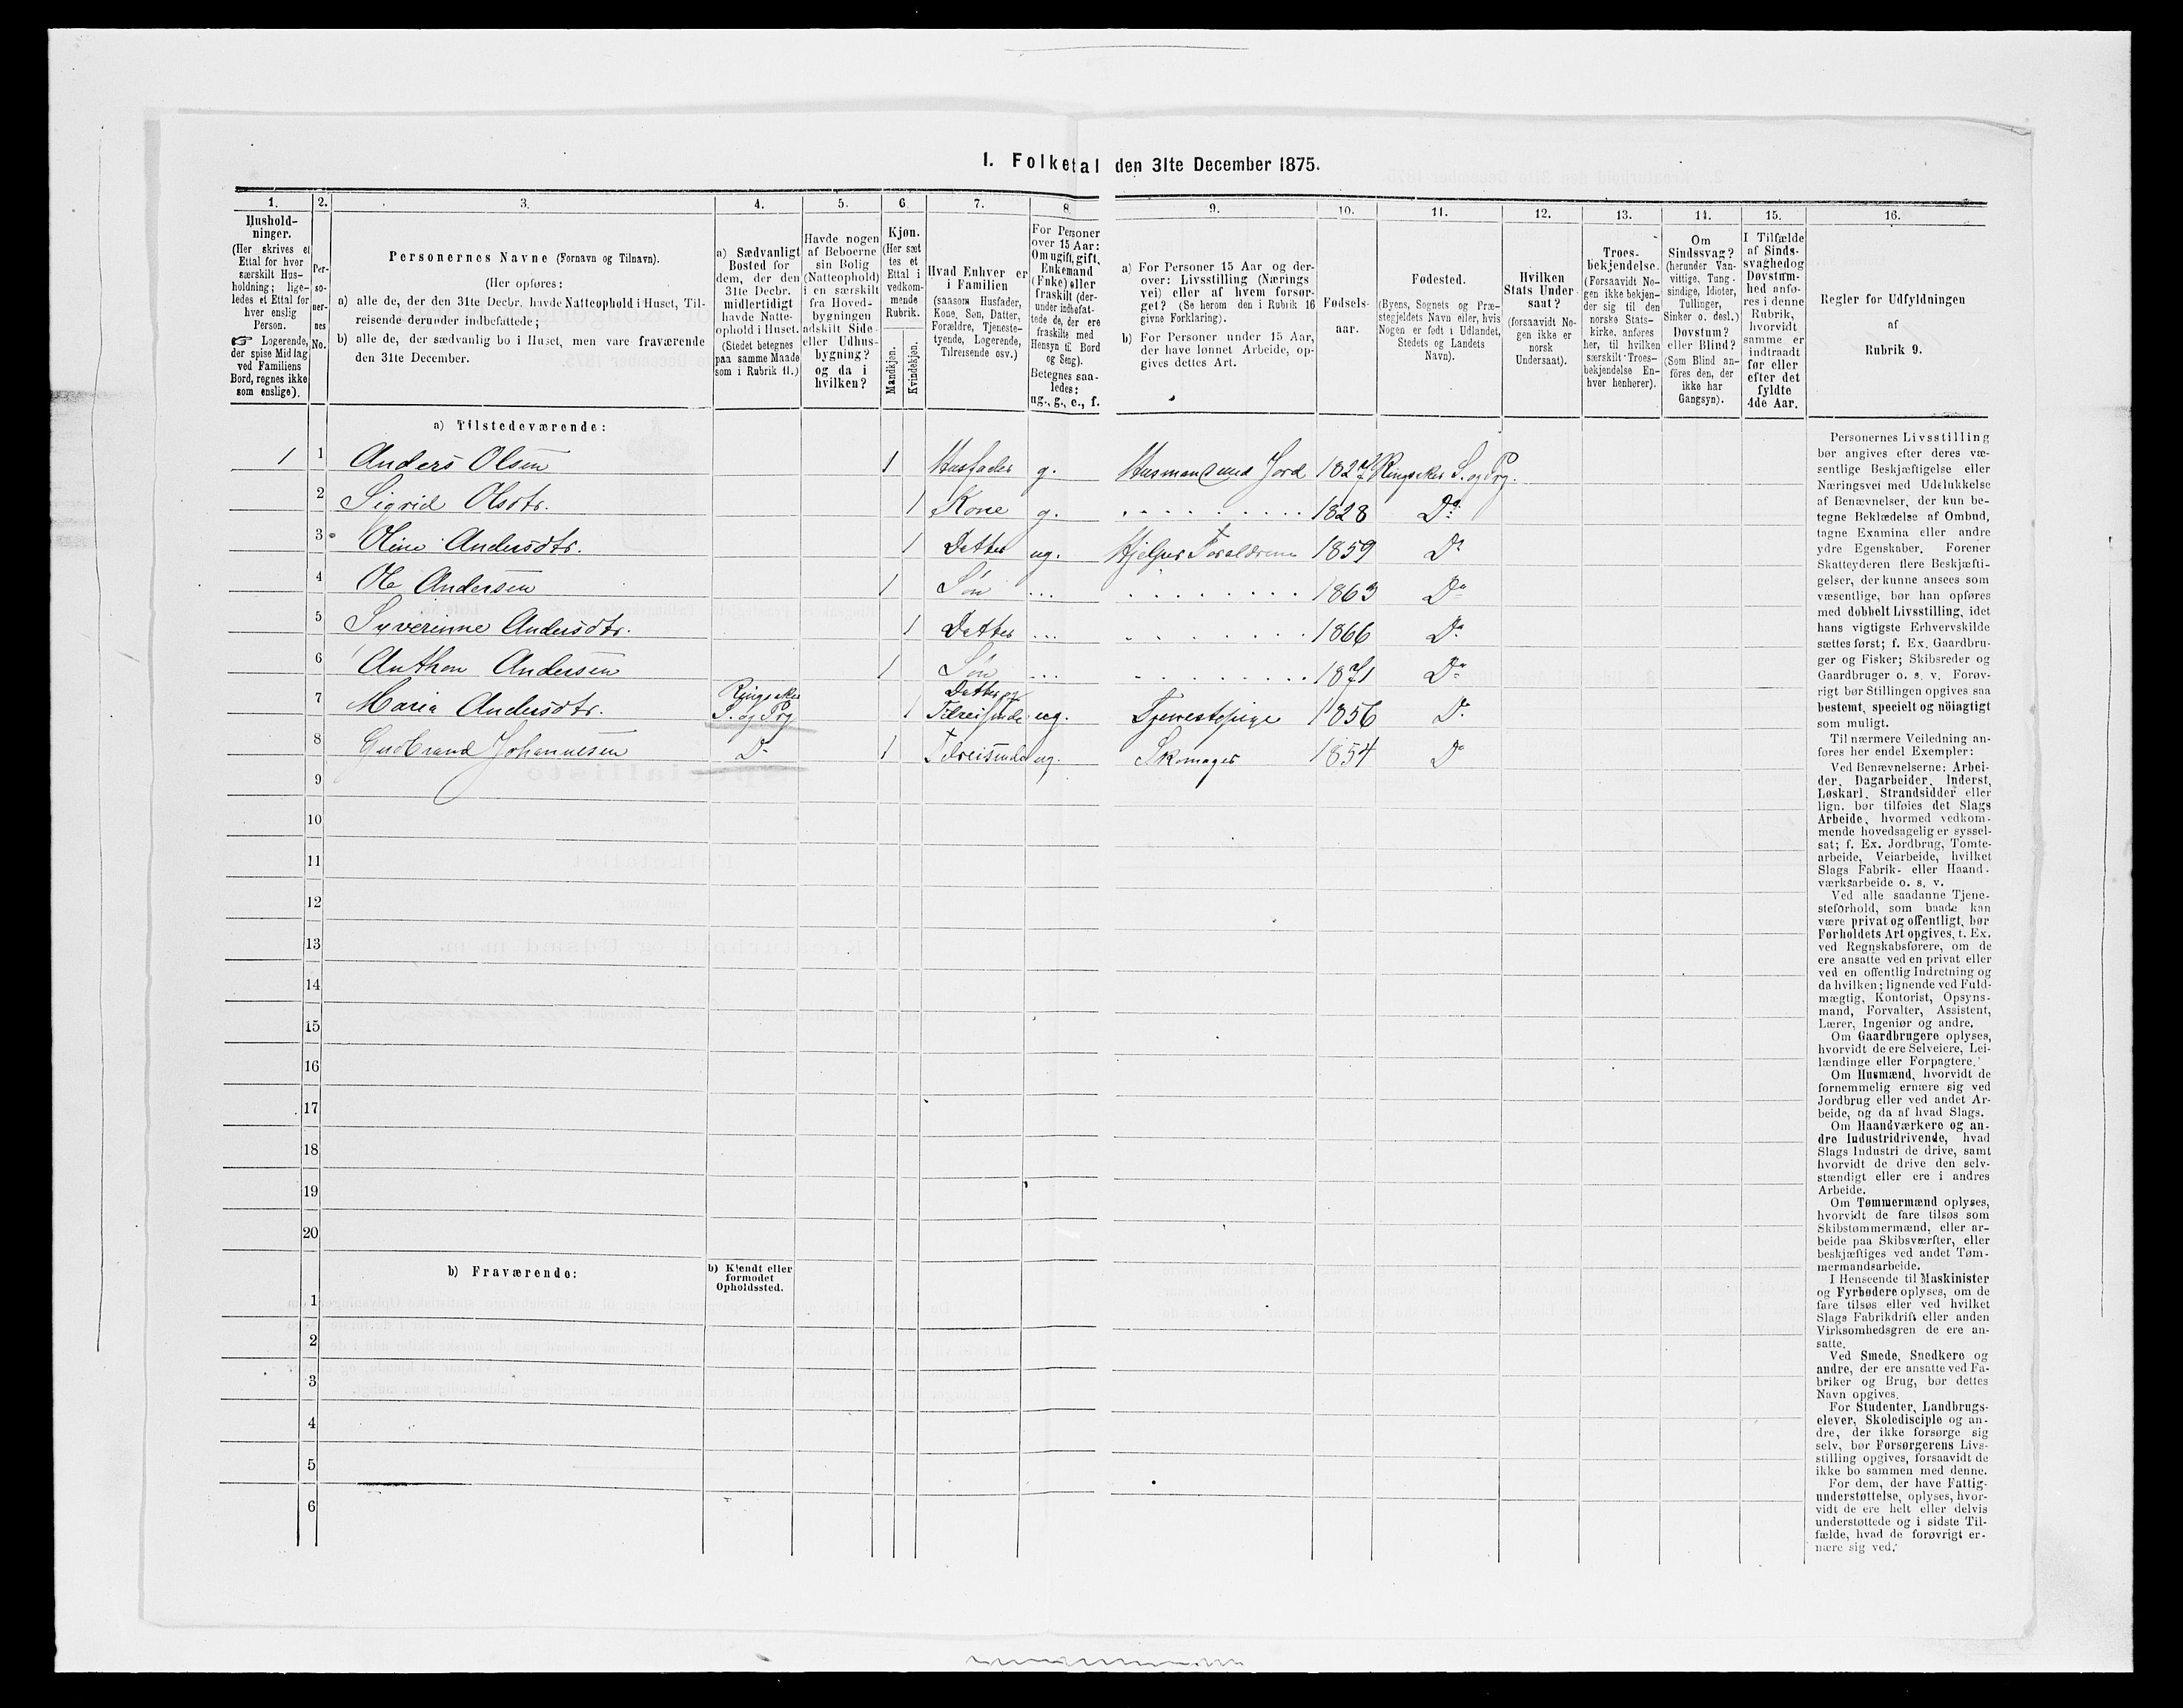 1. Folketal den 31te December 1875.
1. 2. 3. 4. 5. 6. 7. 8. 9. 10. 11. 12. 13. 14. 15. 16.
Hushold-
ninger.
(Her skrives et
Ettal for hver
særskilt Hus-
holdning; lige-
ledes et Ettal for
hver enslig
Person.
☞ Logerende,
der spise Middag
ved Familiens
Bord, regnes ikke
som enslige).
Per-
so-
ner-
nes
No.
Personernes Navne (Fornavn og Tilnavn).
(Her opføres:
a) alle de, der den 31te Decbr. havde Natteophold i Huset, Til-
reisende derunder indbefattede;
b) alle de, der sædvanlig bo i Huset, men vare fraværende
den 31te December.
a) Sædvanligt
Bosted for
dem, der den
31te Decbr.
midlertidigt
havde Natte-
ophold i Huset.
(Stedet betegnes
paa samme Maade
som i Rubrik 11.)
Havde nogen
af Beboerne
sin Bolig
(Natteophold)
i en særskilt
fra Hoved-
bygningen
adskilt Side-
eller Udhus-
bygning?
og da i
hvilken?
Kjøn.
(Her sæt-
tes et
Ettal i
vedkom-
mende
Rubrik.
Mandkjøn.
Kvindekjøn.
Hvad Enhver er
i Familien
(saasom Husfader,
Kone, Søn, Datter,
Forældre, Tjeneste-
tyende, Logerende,
Tilreisende osv.)
For Personer
over 15 Aar:
Om ugift, gift,
Enkemand
(Enke) eller
fraskilt (der-
under indbefat-
tede de, der ere
fraskilte med
Hensyn til Bord
og Seng).
Betegnes saa-
ledes:
ug., g., e., f.
a) For Personer 15 Aar og der-
over: Livsstilling (Nærings-
vei) eller af hvem forsør-
get? (Se herom den i Rubrik 16
givne Forklaring).
b) For Personer under 15 Aar,
der have lønnet Arbeide, op-
gives dettes Art.
Fødsels-
aar.
Fødested.
(Byens, Sognets og Præ-
stegjeldets Navn eller, hvis
Nogen er født i Udlandet,
Stedets og Landets
Navn).
Hvilken
Stats Under-
saat?
(forsaavidt No-
gen ikke er
norsk
Undersaat).
Troes-
bekjendelse.
(Forsaavidt No-
gen ikke bekjen-
der sig til den
norske Stats-
kirke, anføres
her, til hvilken
særskilt Troes-
bekjendelse En-
hver henhører).
Om
Sindssvag?
(herunder Van-
vittige, Tung-
sindige, Idioter,
Tullinger,
Sinker o. desl.)
Døvstum?
eller Blind?
(Som Blind an-
føres den, der
ikke har
Gangsyn).
I Tilfælde
af Sinds-
svaghed og
Døvstum-
hed anfø-
res i denne
Rubrik,
hvorvidt
samme er
indtraadt
før eller
efter det
fyldte
4de Aar.
Regler for Udfyldningen
af
Rubrik 9.
a) Tilstedeværende:
1 1 Anders Olsen 1 Husfader g. Husmand med Jord 1827 Ringsaker S. og Prg.
2 Sigrid Olsdtr. 1 Kone g. 1828 Do
3 Oline Andersdtr. 1 Datter ug. Hjelper Foraldrene 1859 Do
4 Ole Andersen 1 Søn ... 1863 Do
5 Syverinne Andersdtr. 1 Datter ... 1866 Do
6 Anthon Andersen 1 Søn ... 1871 Do
7 Maria Andersdtr. Ringsaker S. og Prg 1 Datter og Tilreisende ug. Tjenestepige 1856 Do
8 Gudbrand Johannesen Do 1 Tilreisende ug. Skomager 1854 Do
9
10
11
12
13
14
15
16
17
18
19
20
b) Fraværende:
b) Kjendt eller
formodet
Opholdssted.
1
2
3
4
5
6
Personernes Livsstilling
bør angives efter deres væ-
sentlige Beskjæftigelse eller
Næringsvei med Udelukkelse
af Benævnelser, der kun be-
tegne Beklædelse af Ombud,
tagne Examina eller andre
ydre Egenskaber. Forener
Skatteyderen flere Beskjæfti-
gelser, der kunne ansees som
væsentlige, bør han opføres
med dobbelt Livsstilling, idet
hans vigtigste Erhvervskilde
sættes først; f. Ex. Gaardbru-
ger og Fisker; Skibsreder og
Gaardbruger o. s. v. Forøv-
rigt bør Stillingen opgives saa
bestemt, specielt og nöiagtigt
som muligt.
Til nærmere Veiledning an-
føres her endel Exempler:
Ved Benævnelserne: Arbei-
der, Dagarbeider, Inderst,
Løskarl, Strandsidder eller
lign. bør tilføies det Slags
Arbeide, hvormed vedkom-
mende hovedsagelig er syssel-
sat; f. Ex. Jordbrug, Tomte-
arbeide, Veiarbeide, hvilket
Slags Fabrik- eller Haand-
værksarbeide o. s. v.
Ved alle saadanne Tjene-
steforhold, som baade kan
være privat og offentligt, bør
Forholdets Art opgives, t. Ex.
ved Regnskabsførere, om de
ere ansatte ved en privat eller
ved en offentlig Indretning og
da hvilken; lignende ved Fuld-
mægtig, Kontorist, Opsyns-
mand, Forvalter, Assistent,
Lærer, Ingeniør og andre.
Om Gaardbrugere oplyses,
hvorvidt de ere Selveiere, Lei-
lændinge eller Forpagtere.
Om Husmænd, hvorvidt de
fornemmelig ernære sig ved
Jordbrug eller ved andet Ar-
beide, og da af hvad Slags.
Om Haandværkere og an-
dre Industridrivende, hvad
Slags Industri de drive, samt
hvorvidt de drive den selv-
stændigt eller ere i andres
Arbeide.
Om Tømmermænd oplyses,
hvorvidt de fare tilsøs som
Skibstømmermænd, eller ar-
beide paa Skibsværfter, eller
beskjæftiges ved andet Tøm-
mermandsarbeide.
I Henseende til Maskinister
og Fyrbødere oplyses, om de
fare tilsøs eller ved hvilket
Slags Fabrikdrift eller anden
Virksomhedsgren de ere an-
satte.
Ved Smede, Snedkere og
andre, der ere ansatte ved Fa-
briker og Brug, bør dettes
Navn opgives.
For Studenter, Landbrugs-
elever, Skoledisciple og an-
dre, der ikke forsørge sig
selv, bør Forsørgerens Livs-
stilling opgives, forsaavidt de
ikke bo sammen med denne.
For dem, der have Fattig-
understøttelse, oplyses, hvor-
vidt de ere helt eller delvis
understøttede og i sidste Til-
fælde, hvad de forøvrigt er-
nære sig ved.